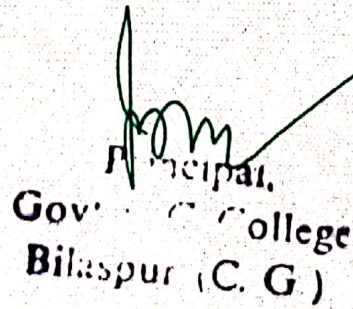 Principal,
Gov College
Bilaspur (C. G.)